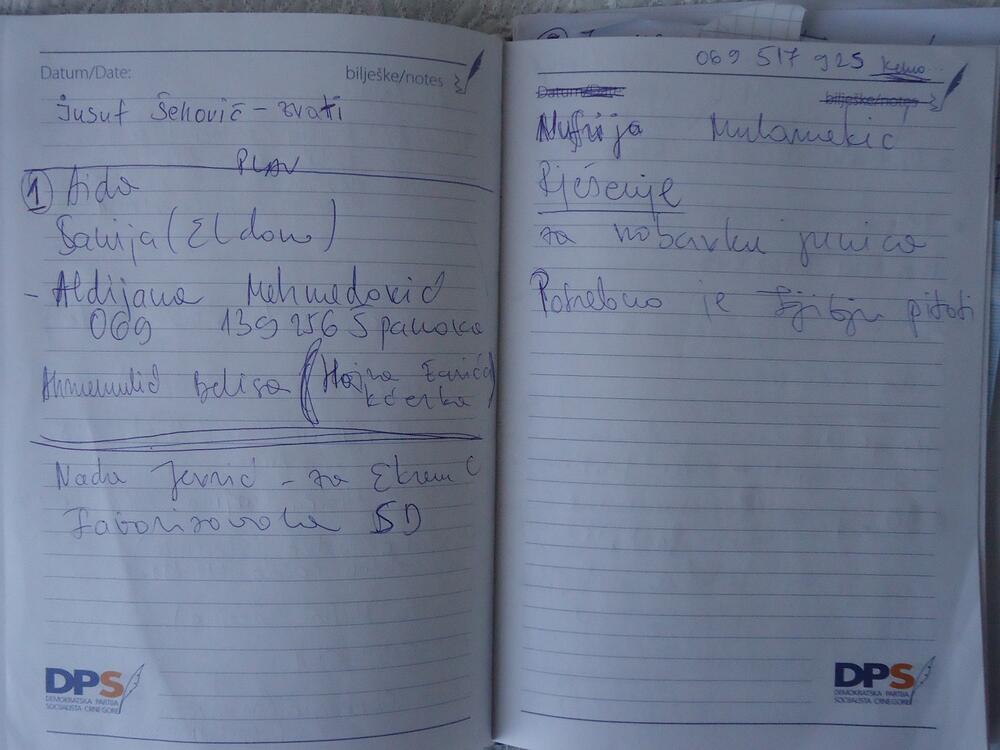 Datum/Date: bilješke/notes
Jusuf Šehović - zvati
PLAV
1 Aida
Sanija (Eldova)
- Aldijana Mehmedović
069 139 256 Španska
Ahmemulić Belisa (Hajra
kćerka)
Nada Jevrić - za Ekrem
Favorizovala SD
DPS
DEMOKRATSKA PARTIJA
SOCIJALISTA CRNE GORE
069 517 925 Kemo
Datum/Date: bilješke/notes
Mulamekić
Rješenje
za nobavku junica
Potrebno je pitati
DPS
DEMOKRATSKA PARTIJA
SOCIJALISTA CRNE GORE